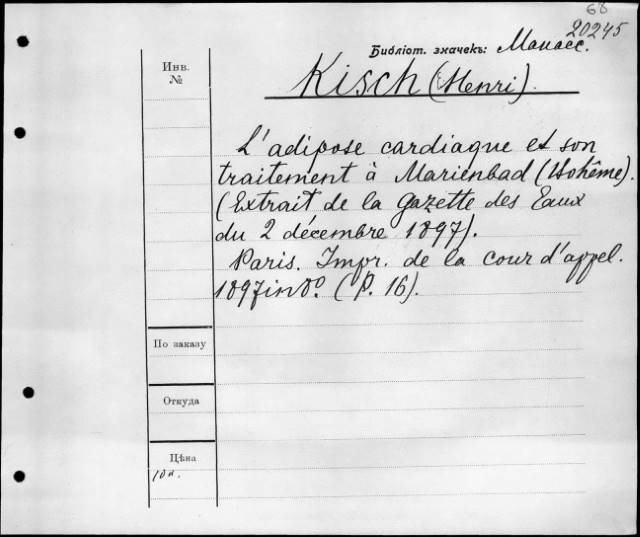 68
20245
Библіот. значекъ: Манасс.
Инв.
№
Kisch (Henri).
L'adipose cardiaque et son
traitement à Marienbad (Bohême).
(Extrait de la Gazette des Eaux
du 2 décembre 1897).
Paris. Impr. de la cour d'appel.
1897 in 8º. (P. 16).
По заказу
Откуда
Цѣна
10к.